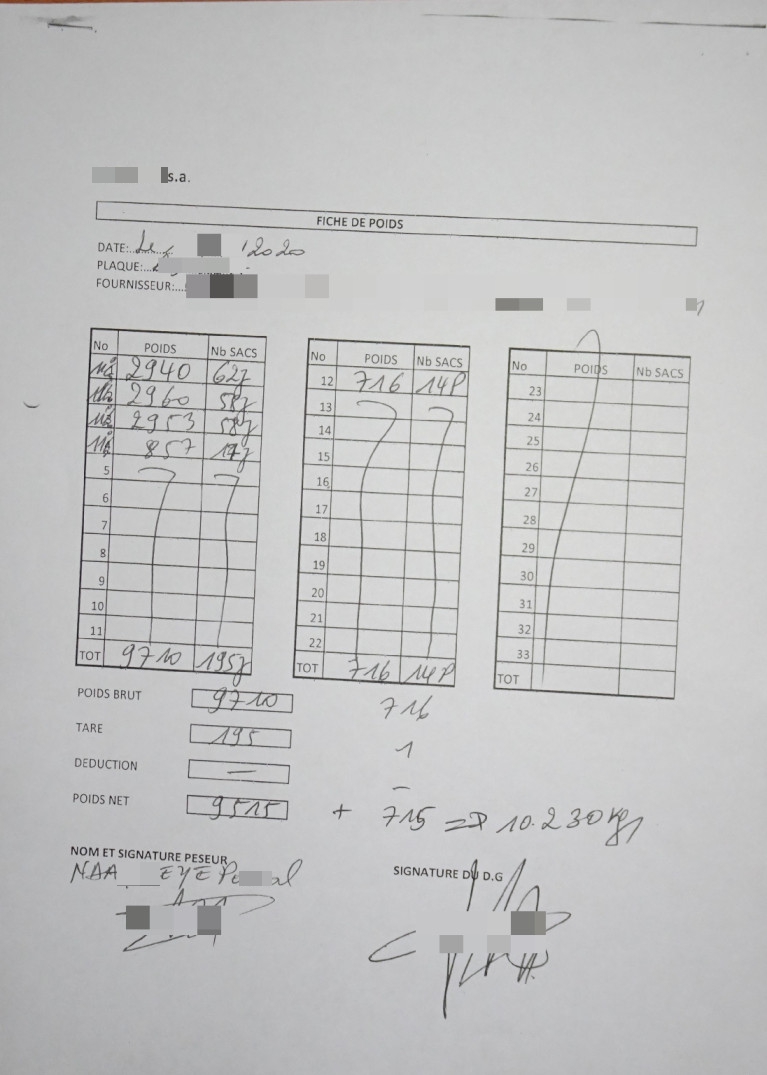 s.a.
FICHE DE POIDS
DATE:... Le 2020
PLAQUE:...
FOURNISSEUR:...
No POIDS Nb SACS
2940 62j
2960 58j
2953 58j
857 17j
5
6
7
8
9
10
11
TOT 9710 195j
No POIDS Nb SACS
12 716 14P
13
14
15
16
17
18
19
20
21
22
TOT 716 14P
No POIDS Nb SACS
23
24
25
26
27
28
29
30
31
32
33
TOT
POIDS BRUT 9710 716
TARE 195 1
DEDUCTION — –
POIDS NET 9515 + 715 => 10.230kg
NOM ET SIGNATURE PESEUR
NAA EYE P al
SIGNATURE DU D.G